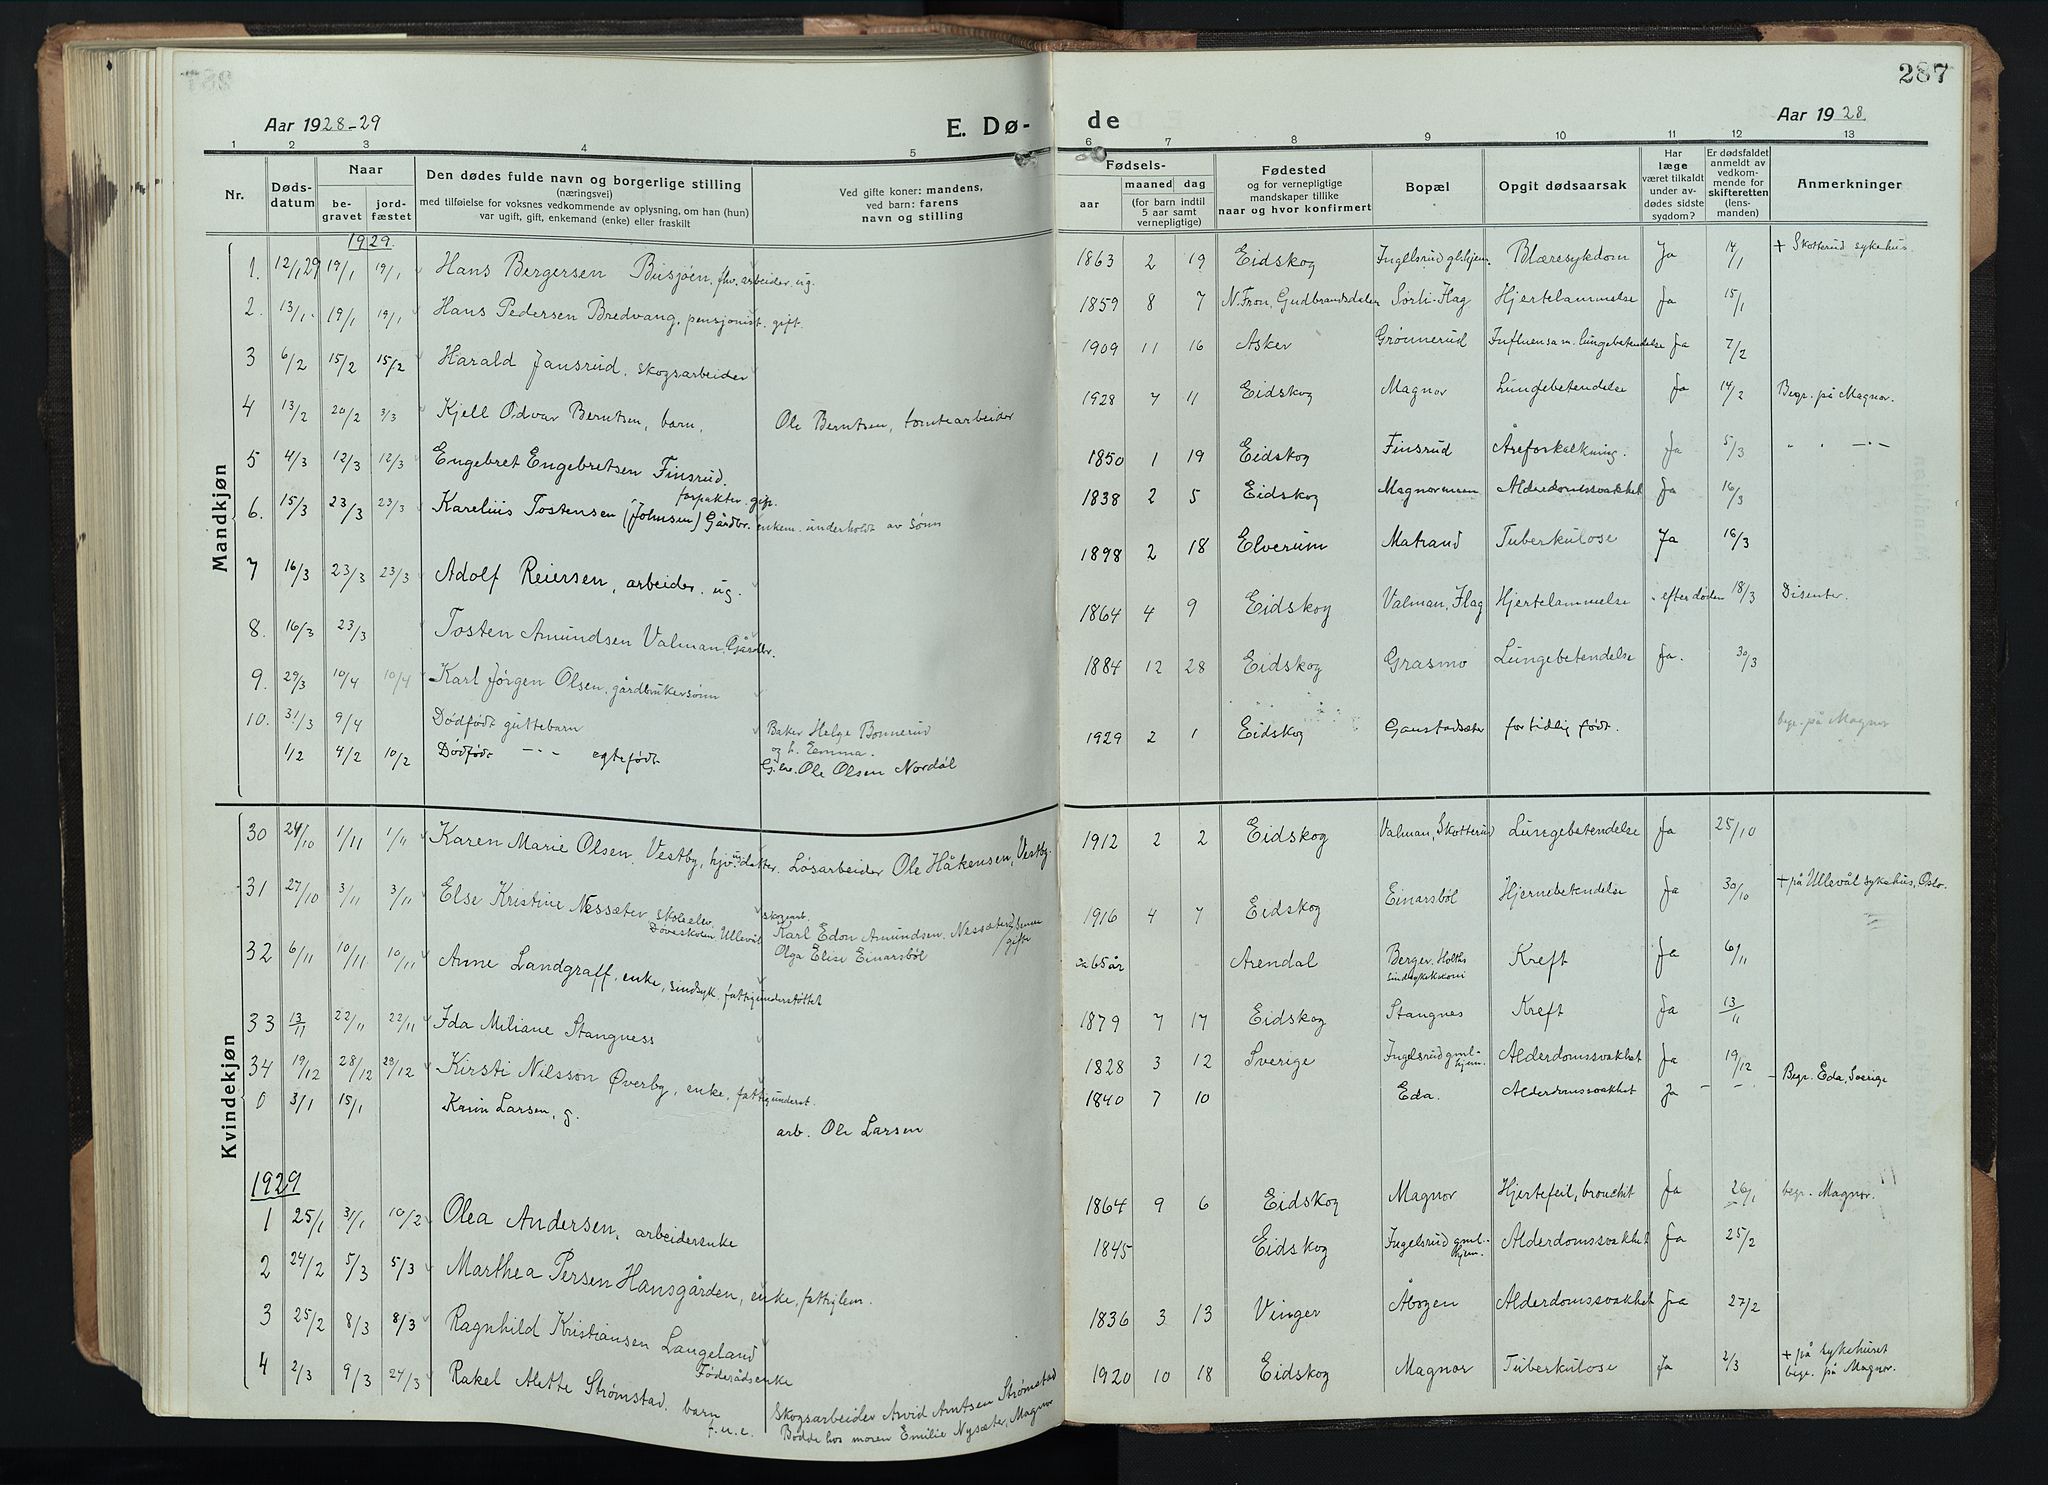 287
Aar 1928-29
E. Dø-
de
Aar 1928.
1 2 3 4 5 6 7 8 9 10 11 12 13
Nr. Døds-datum Naar be-gravet jord-fæstet
Den dødes fulde navn og borgerlige stilling
(næringsvei)
med tilføielse for voksnes vedkommende av oplysning, om han (hun)
var ugift, gift, enkemand (enke) eller fraskilt
Ved gifte koner: mandens,
ved barn: farens
navn og stilling
Fødsels-
aar maaned dag
(for barn indtil
5 aar samt
vernepligtige)
Fødested
og for vernepligtige
mandskaper tillike
naar og hvor konfirmert
Bopæl
Opgit dødsaarsak
Har
læge
været tilkaldt
under av-
dødes sidste
sygdom?
Er dødsfaldet
anmeldt av
vedkom-
mende for
skifteretten
(lens-
manden)
Anmerkninger
Mandkjøn
1929.
1. 12/1 29 19/1 19/1 Hans Bergersen Busjøen. fhv. arbeider ug. 1863 2 19 Eidskog Ingelsrud glhjem. Blæresykdom Ja 14/1 + Skotterud sykehus.
2. 13/1. 19/1 19/1 Hans Pedersen Bredvang, pensjonist. gift. 1859 8 7 N. Fron, Gudbrandsdalen Sørli-Flag Hjertelammelse Ja 15/1
3 6/2 15/2 15/2 Harald Jansrud. skogsarbeider 1909 11 16 Asker Grønnerud Influensa m. lungebetendelse Ja 7/2
4 13/2 20/2 3/3 Kjell Odvar Berntsen, barn, Ole Berntsen, tomtearbeider 1928 7 11 Eidskog Magnor Lungebetendelse Ja 14/2 Begr. på Magnor.
5 4/3 12/3 12/3 Engebret Engebretsen Finsrud. forpakter. gift. 1850 1 19 Eidskog Finsrud Åreforkalkning. Ja 5/3 " " -"-
6. 15/3 23/3 23/3 Karelius Tostensen (Johnsen) Gårdbr. enkem. underholdt av sønn 1838 2 5 Eidskog Magnormoen Alderdomssvakhet Ja 16/3
7 16/3 23/3 23/3 Adolf Reiersen, arbeider. ug. 1898 2 18 Elverum Matrand Tuberkulose Ja 16/3
8. 16/3 23/3 Tosten Amundsen Valman. Gårdbr. 1864 4 9 Eidskog Valman, Flag Hjertelammelse efter døden 18/3 Disenter.
9. 29/3 10/4 10/4 Karl Jørgen Olsen. gårdbrukersønn 1884 12 28 Eidskog Grasmo Lungebetendelse Ja. 30/3
10. 31/3 9/4 Dødfødt guttebarn Baker Helge Bonnerud
og h. Emma. begr. på Magnor
1/2 4/2 10/2 Dødfødt -"- egtefødt G.er. Ole Olsen Nordål 1929 2 1 Eidskog Gaustadsæter for tidlig født.
Kvindekjøn
30 24/10 1/11 1/11 Karen Marie Olsen. Vestby, hjv. ug. datter. Løsarbeider Ole Håkensen, Vestby. 1912 2 2 Eidskog Valman, Skotterud Lungebetendelse Ja 25/10
31 27/10 3/11 3/11 Else Kristine Nessæter, skoleelev Døveskolen, Ullevål skogsarb. Karl Edon Amundsen. Nessæter,
Olga Elise Einarsbøl gifte 1916 4 7 Eidskog Einarsbøl Hjernebetendelse Ja 30/10 + på Ullevål sykehus, Oslo.
32 6/11 10/11 10/11 Anne Landgraff. enke, sindsyk. fattigunderstøttet ca 65 år Arendal Berger. Holths sindsykekoloni Kreft Ja 6/11
33 13/11 22/11 22/11 Ida Miliane Stangness 1879 7 17 Eidskog Stangnes Kreft Ja 13/11
34 19/12 28/12 29/12 Kirsti Nilsson Øverby, enke, fattigunderst. 1828 3 12 Sverige Ingelsrud gml-hjem. Alderdomssvakhet Ja 19/12
0 3/1 15/1 Karin Larsen, g. arb. Ole Larsen 1840 7 10 Eda. Alderdomssvakhet Ja - - - Begr. Eda, Sverige
1929
1 25/1 31/1 10/2 Olea Andersen, arbeiderenke 1864 9 6 Eidskog Magnor Hjertefeil, bronchit Ja 26/1 begr. Magnor.
2 24/2 5/3 5/3 Marthea Persen Hansgården, enke, fattiglem. 1845 Eidskog Ingelsrud gml-hjem. Alderdomssvakhet Ja 25/2
3 25/2 8/3 8/3 Ragnhild Kristiansen Langeland Føderådsenke 1836 3 13 Vinger Åbogen Alderdomssvakhet Ja 27/2
4 2/3 9/3 24/3 Rakel Alette Strømstad. barn f.u.e. Skogsarbeider Arvid Arntsen Strømstad
Bodde hos moren Emilie Nysæter, Magnor 1920 10 18 Eidskog Magnor Tuberkulose Ja 2/3 + på sykehuset
begr. på Magnor.